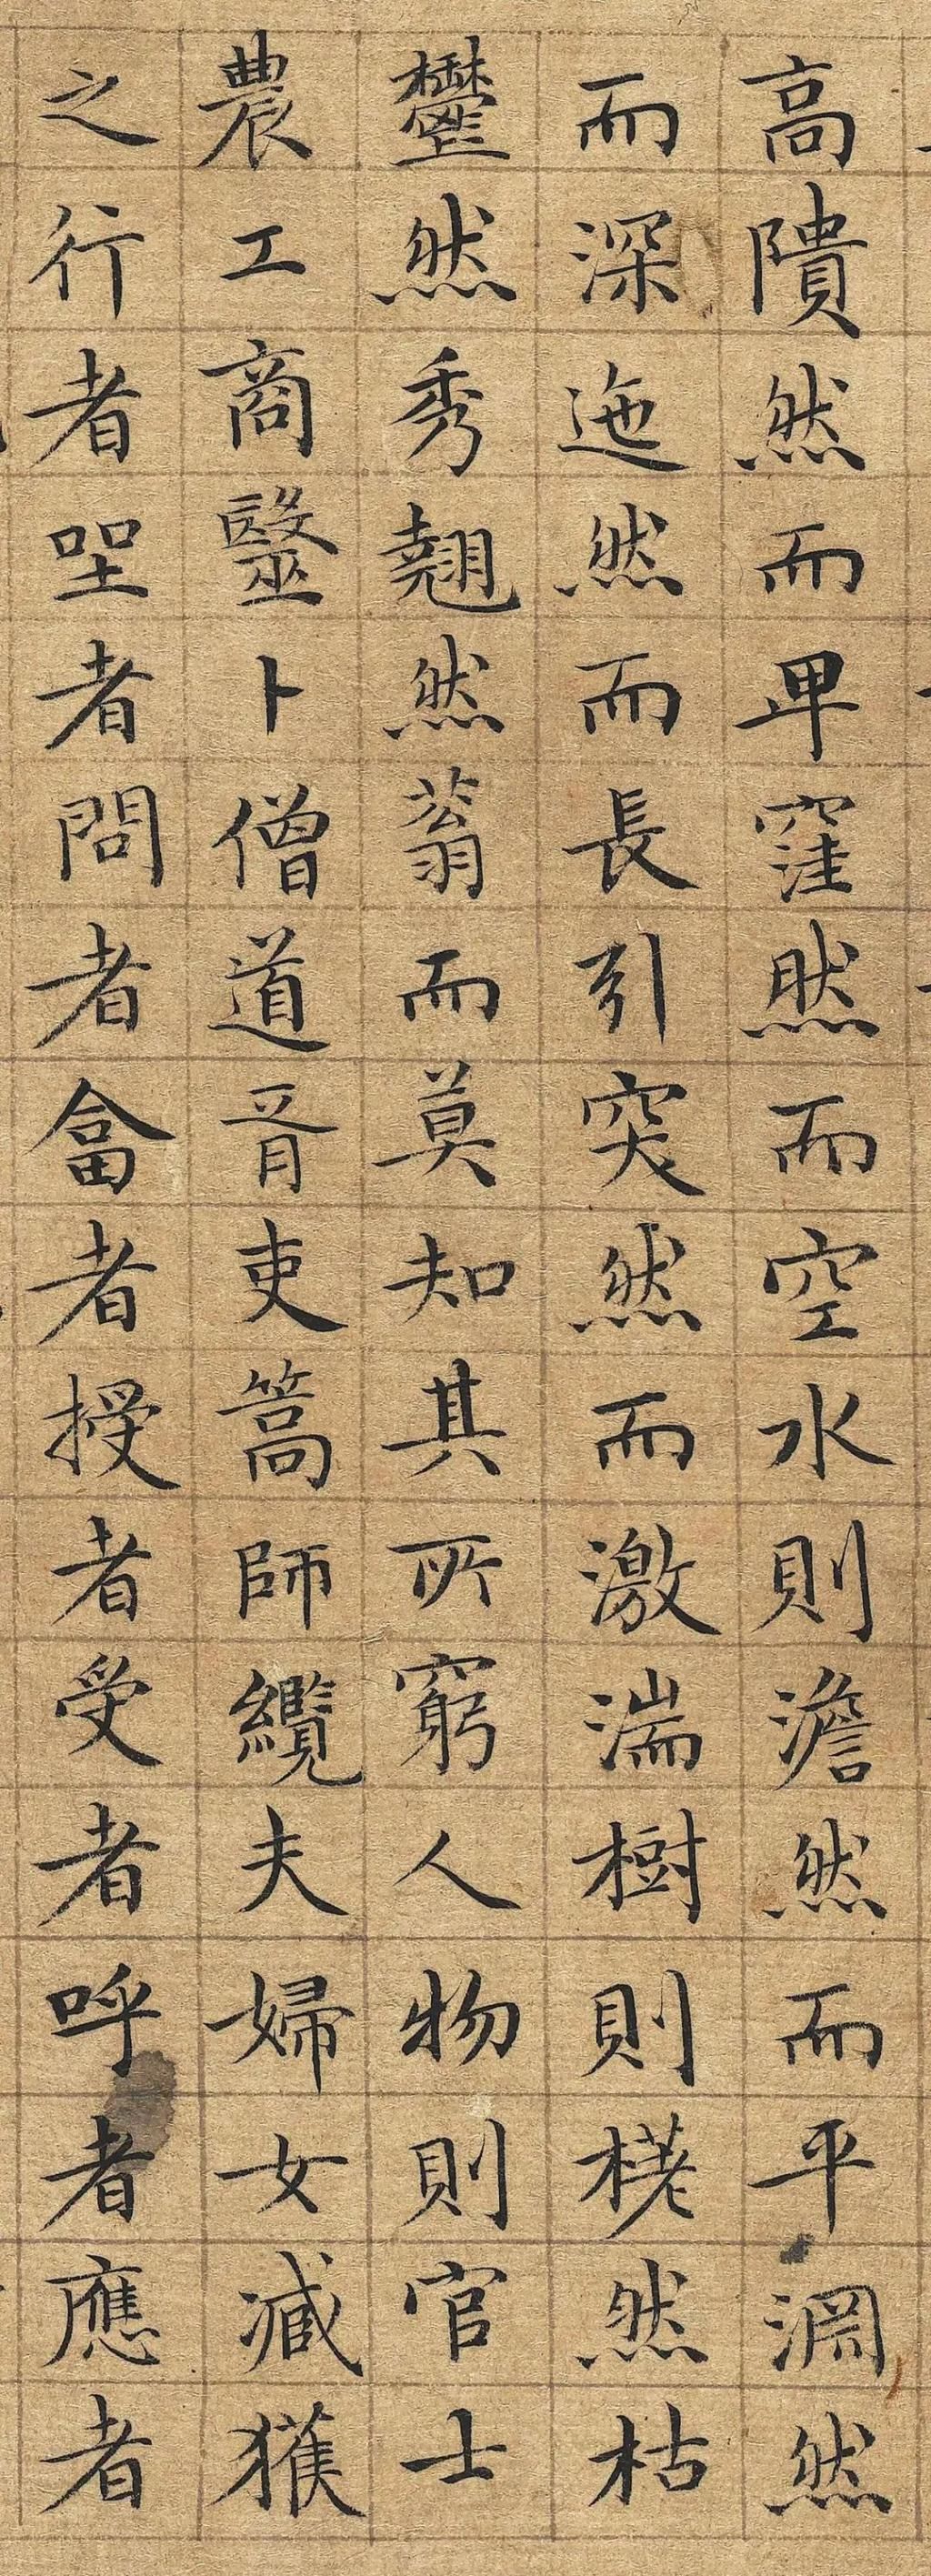 高隤然而卑窪然而空水則澹然而平淵然
而深迤然而長引突然而激湍樹則栳然枯
鬱然秀翹然蓊而莫知其所窮人物則官士
農工商毉卜僧道胥吏篙師纜夫婦女臧獲
之行者坐者問者畣者授者受者呼者應者